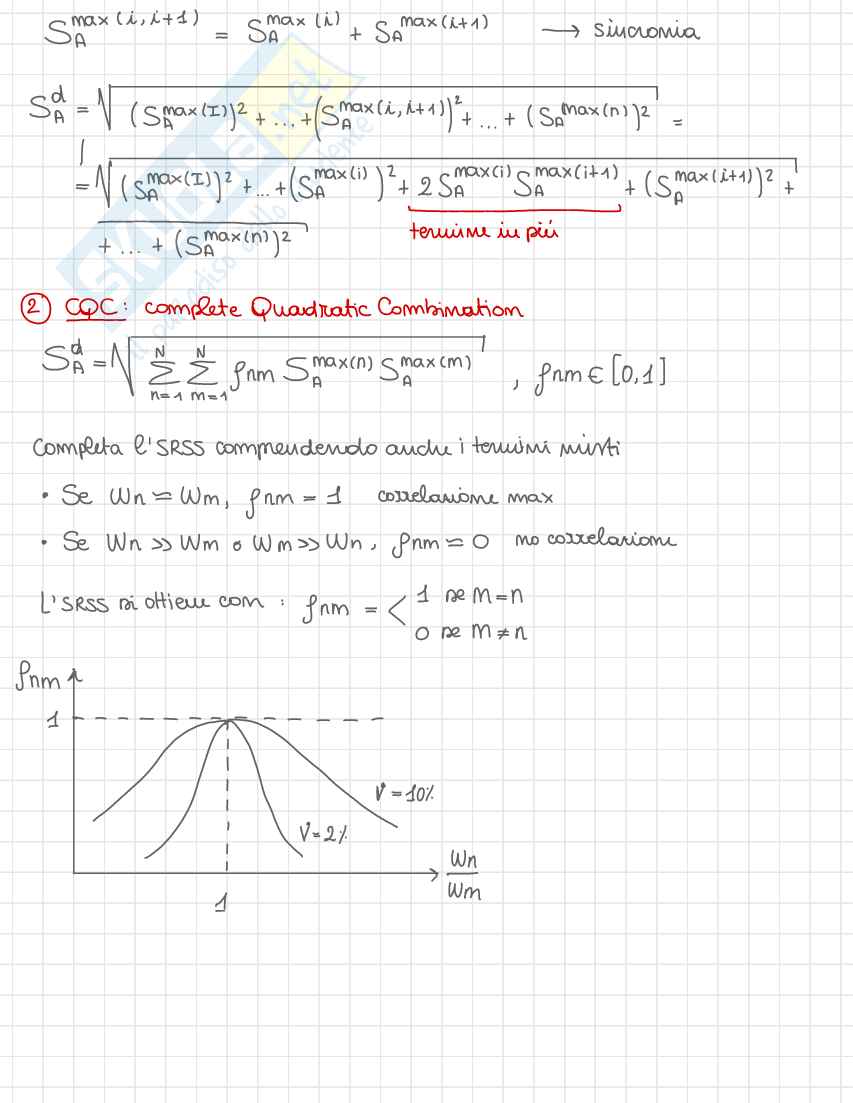 S_A^max(i,i+1) = S_A^max(i) + S_A^max(i+1) → sincronia
S_A^d = √(S_A^max(I))² + ... + (S_A^max(i,i+1))² + ... + (S_A^max(n))² =
= √(S_A^max(I))² + ... + (S_A^max(i))² + 2 S_A^max(i) S_A^max(i+1) + (S_A^max(i+1))² +
+ ... + (S_A^max(n))²
termine in più
② CQC: complete Quadratic Combination
S_A^d = √ Σ_{n=1}^{N} Σ_{m=1}^{N} ρnm S_A^max(n) S_A^max(m) , ρnm ∈ [0,1]
Completa l'SRSS comprendendo anche i termini misti
• Se Wn ≃ Wm, ρnm = 1 correlazione max
• Se Wn >> Wm o Wm >> Wn, ρnm ≃ 0 no correlazione
L'SRSS si ottiene con: ρnm = < 1 se m = n
0 se m ≠ n
ρnm
1
V = 10%
V = 2%
Wn
Wm
1
SKUOLA.net